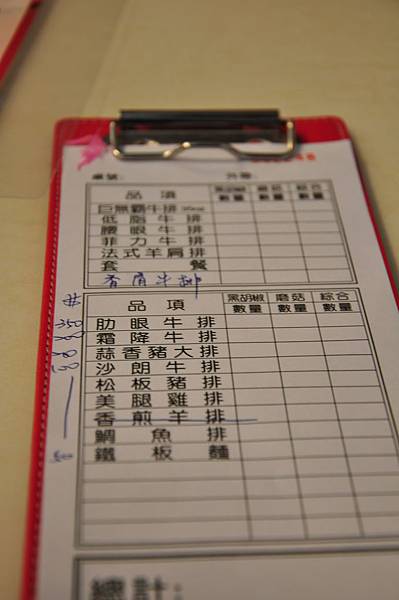 桌號: 外帶:
品項 黑胡椒數量 蘑菇數量 綜合數量
巨無霸牛排
低脂牛排
腰眼牛排
菲力牛排
法式羊肩排
套餐
香肩牛排
品項 黑胡椒數量 蘑菇數量 綜合數量
350 肋眼牛排
霜降牛排
蒜香豬大排
沙朗牛排
松板豬排
美腿雞排
香煎羊排
鯛魚排
50 鐵板麵
總計: